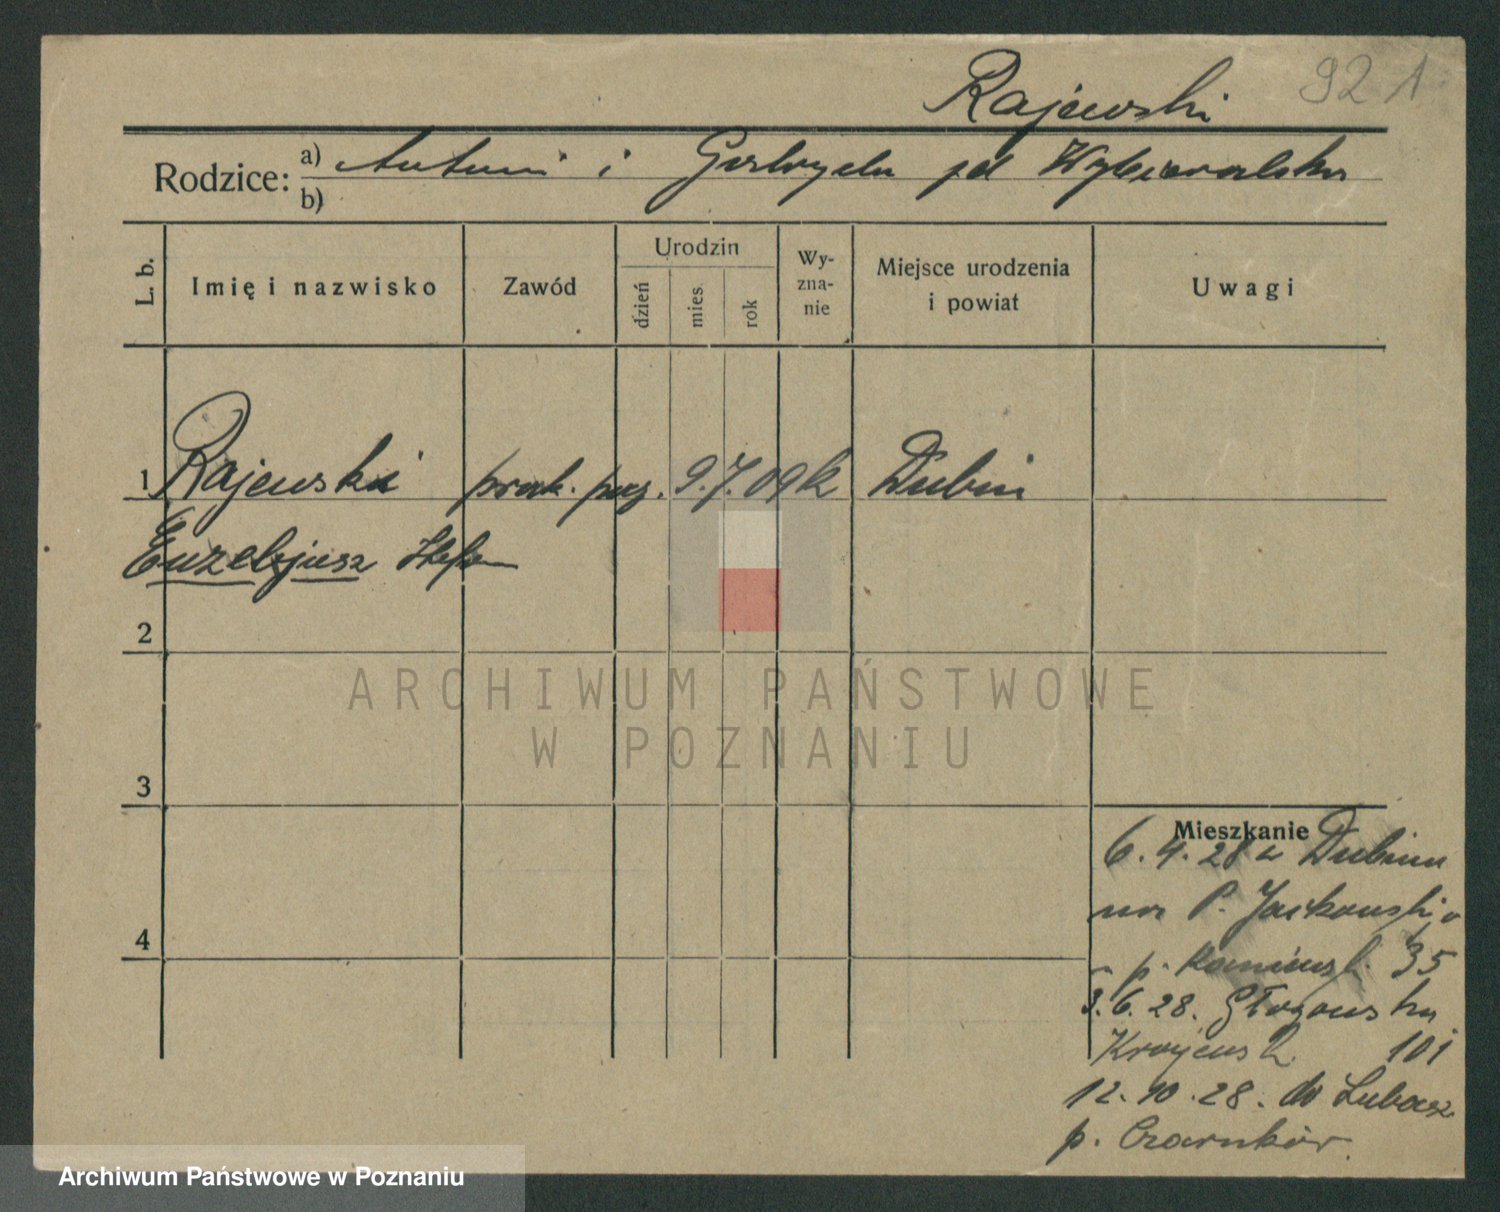 Rajewski 92 1
Rodzice: a) Antoni i Gertruda zd Wybieralska
b)
L. b. Imię i nazwisko Zawód Urodzin dzień mies. rok Wy-zna-nie Miejsce urodzenia i powiat Uwagi
1 Rajewski prak. 9. 7. 09 k Dubin
Euzebjusz Stefan
2
ARCHIWUM PAŃSTWOWE
W POZNANIU
3
Mieszkanie
6. 4. 28 z Dubina
na P. Jackowskiego
p. Kamińsk. 35
3. 6. 28. Głogowska
Krajewsk. 101
4
12. 10. 28. do Lubasz
p. Czarnków.
Archiwum Państwowe w Poznaniu